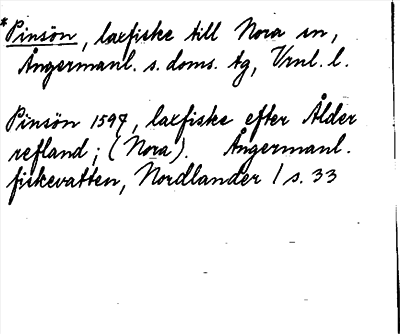 *Pinsön, laxfiske till Nora sn,
Ångermanl. s. doms. tg, Vrnl. l.
Pinsön 1594, laxfiske efter Ålder
refland; (Nora). Ångermanl.
fiskevatten, Nordlander 1 s. 33